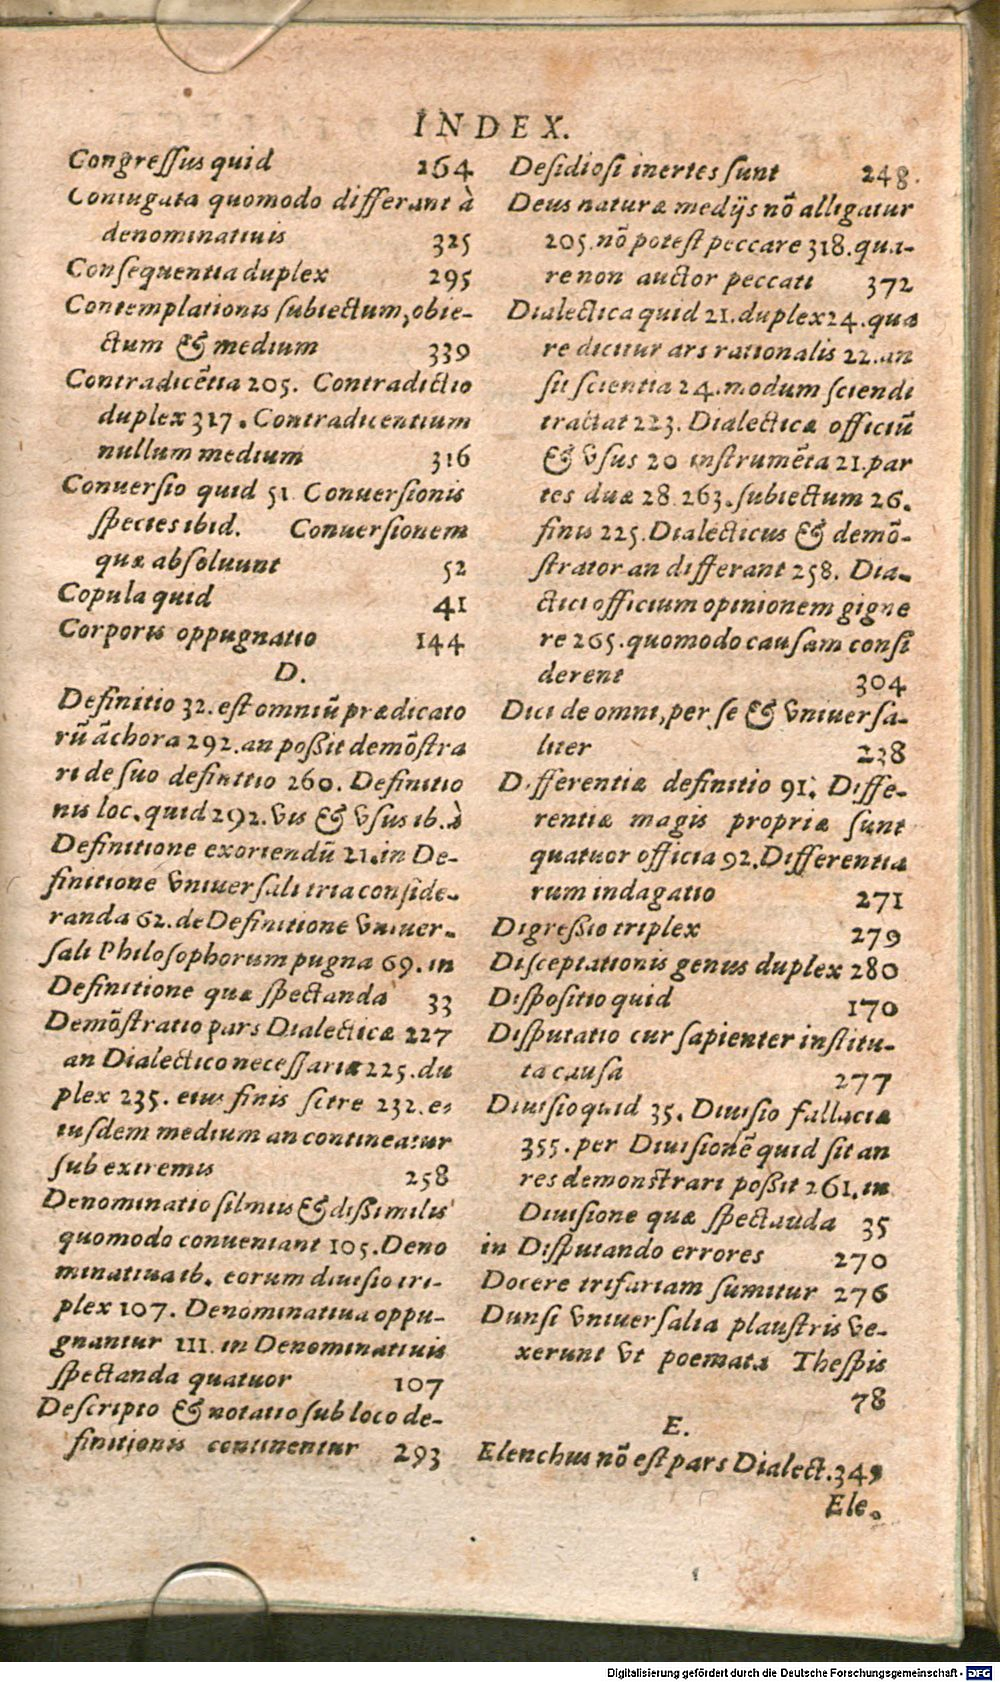 INDEX.
Congressus quid 264
Coniugata quomodo differunt à
denominatiuis 325
Consequentia duplex 295
Contemplationis subiectum, obie-
ctum & medium 339
Contradicẽtia 205. Contradictio
duplex 317. Contradicentium
nullum medium 316
Conuersio quid 51 Conuersionis
species ibid. Conuersionem
quæ absoluunt 52
Copula quid 41
Corporis oppugnatio 144
D.
Definitio 32. est omniũ prædicato
rũ ãchora 292. an poßit demõstra
ri de suo definitio 260. Definitio
nis loc. quid 292. vis & vsus ib. à
Definitione exoriendũ 21. in De-
finitione vniuersali tria conside-
randa 62. de Definitione vniuer-
sali Philosophorum pugna 69. in
Definitione quæ spectanda 33
Demõstratio pars Dialecticæ 227
an Dialectico necessaria 225. du
plex 235. eius finis scire 232. e-
iusdem medium an contineatur
sub extremis 258
Denominatio silmius & dißimilis
quomodo conueniant 105. Deno
minatiua ib. eorum diuisio tri-
plex 107. Denominatiua oppu-
gnantur 111. in Denominatiuis
spectanda quatuor 107
Descripto & notatio sub loco de-
finitionis continentur 293
Desidiosi inertes sunt 248.
Deus naturæ medijs nõ alligatur
205. nõ potest peccare 318. qua-
re non auctor peccati 372
Dialectica quid 21. duplex 24. qua
re dicitur ars rationalis 22. an
sit scientia 24. modum sciendi
tractat 223. Dialecticæ officiũ
& vsus 20 instrumẽta 21. par
tes duæ 28. 263. subiectum 26.
finis 225. Dialecticus & demõ-
strator an differant 258. Dia-
ctici officium opinionem gigne
re 265. quomodo causam consi
derent 304
Dici de omni, per se & vniuersa-
liter 238
Differentiæ definitio 91. Diffe-
rentiæ magis propriæ sunt
quatuor officia 92. Differentia
rum indagatio 271
Digreßio triplex 279
Disceptationis genus duplex 280
Dispositio quid 170
Disputatio cur sapienter institu-
ta causa 277
Diuisio quid 35. Diuisio fallaciæ
355. per Diuisionẽ quid sit an
res demonstrari poßit 261. in
Diuisione quæ spectauda 35
in Disputando errores 270
Docere trifariam sumitur 276
Dunsi vniuersalia plaustris ve-
xerunt vt poemata Thespis
78
E.
Elenchus nõ est pars Dialect. 349
Ele.
Digitalisierung gefördert durch die Deutsche Forschungsgemeinschaft - DFG